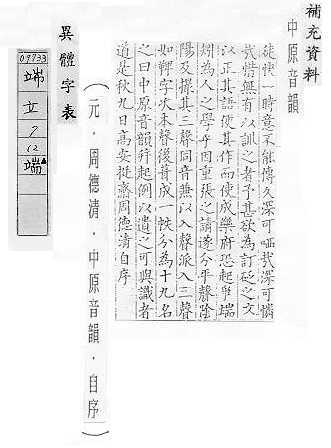 補充資料
中原音韻
徒快一時意不能傳久深可哂哉深可憐
哉惜無有以訓之者予甚欲為訂砭之文
以正其語便其作而使成樂府恐起爭端
矧為人之學乎因重張之請遂分平聲陰
陽及撮其三聲同音兼以入聲派入三聲
如鞞字次本聲後葺成一帙分為十九名
之曰中原音韻并起例以遺之可與識者
道是秋九日高安挺齋周德清自序
（元．周德清．中原音韻．自序）
異體字表
09733
端
立
9
12
端